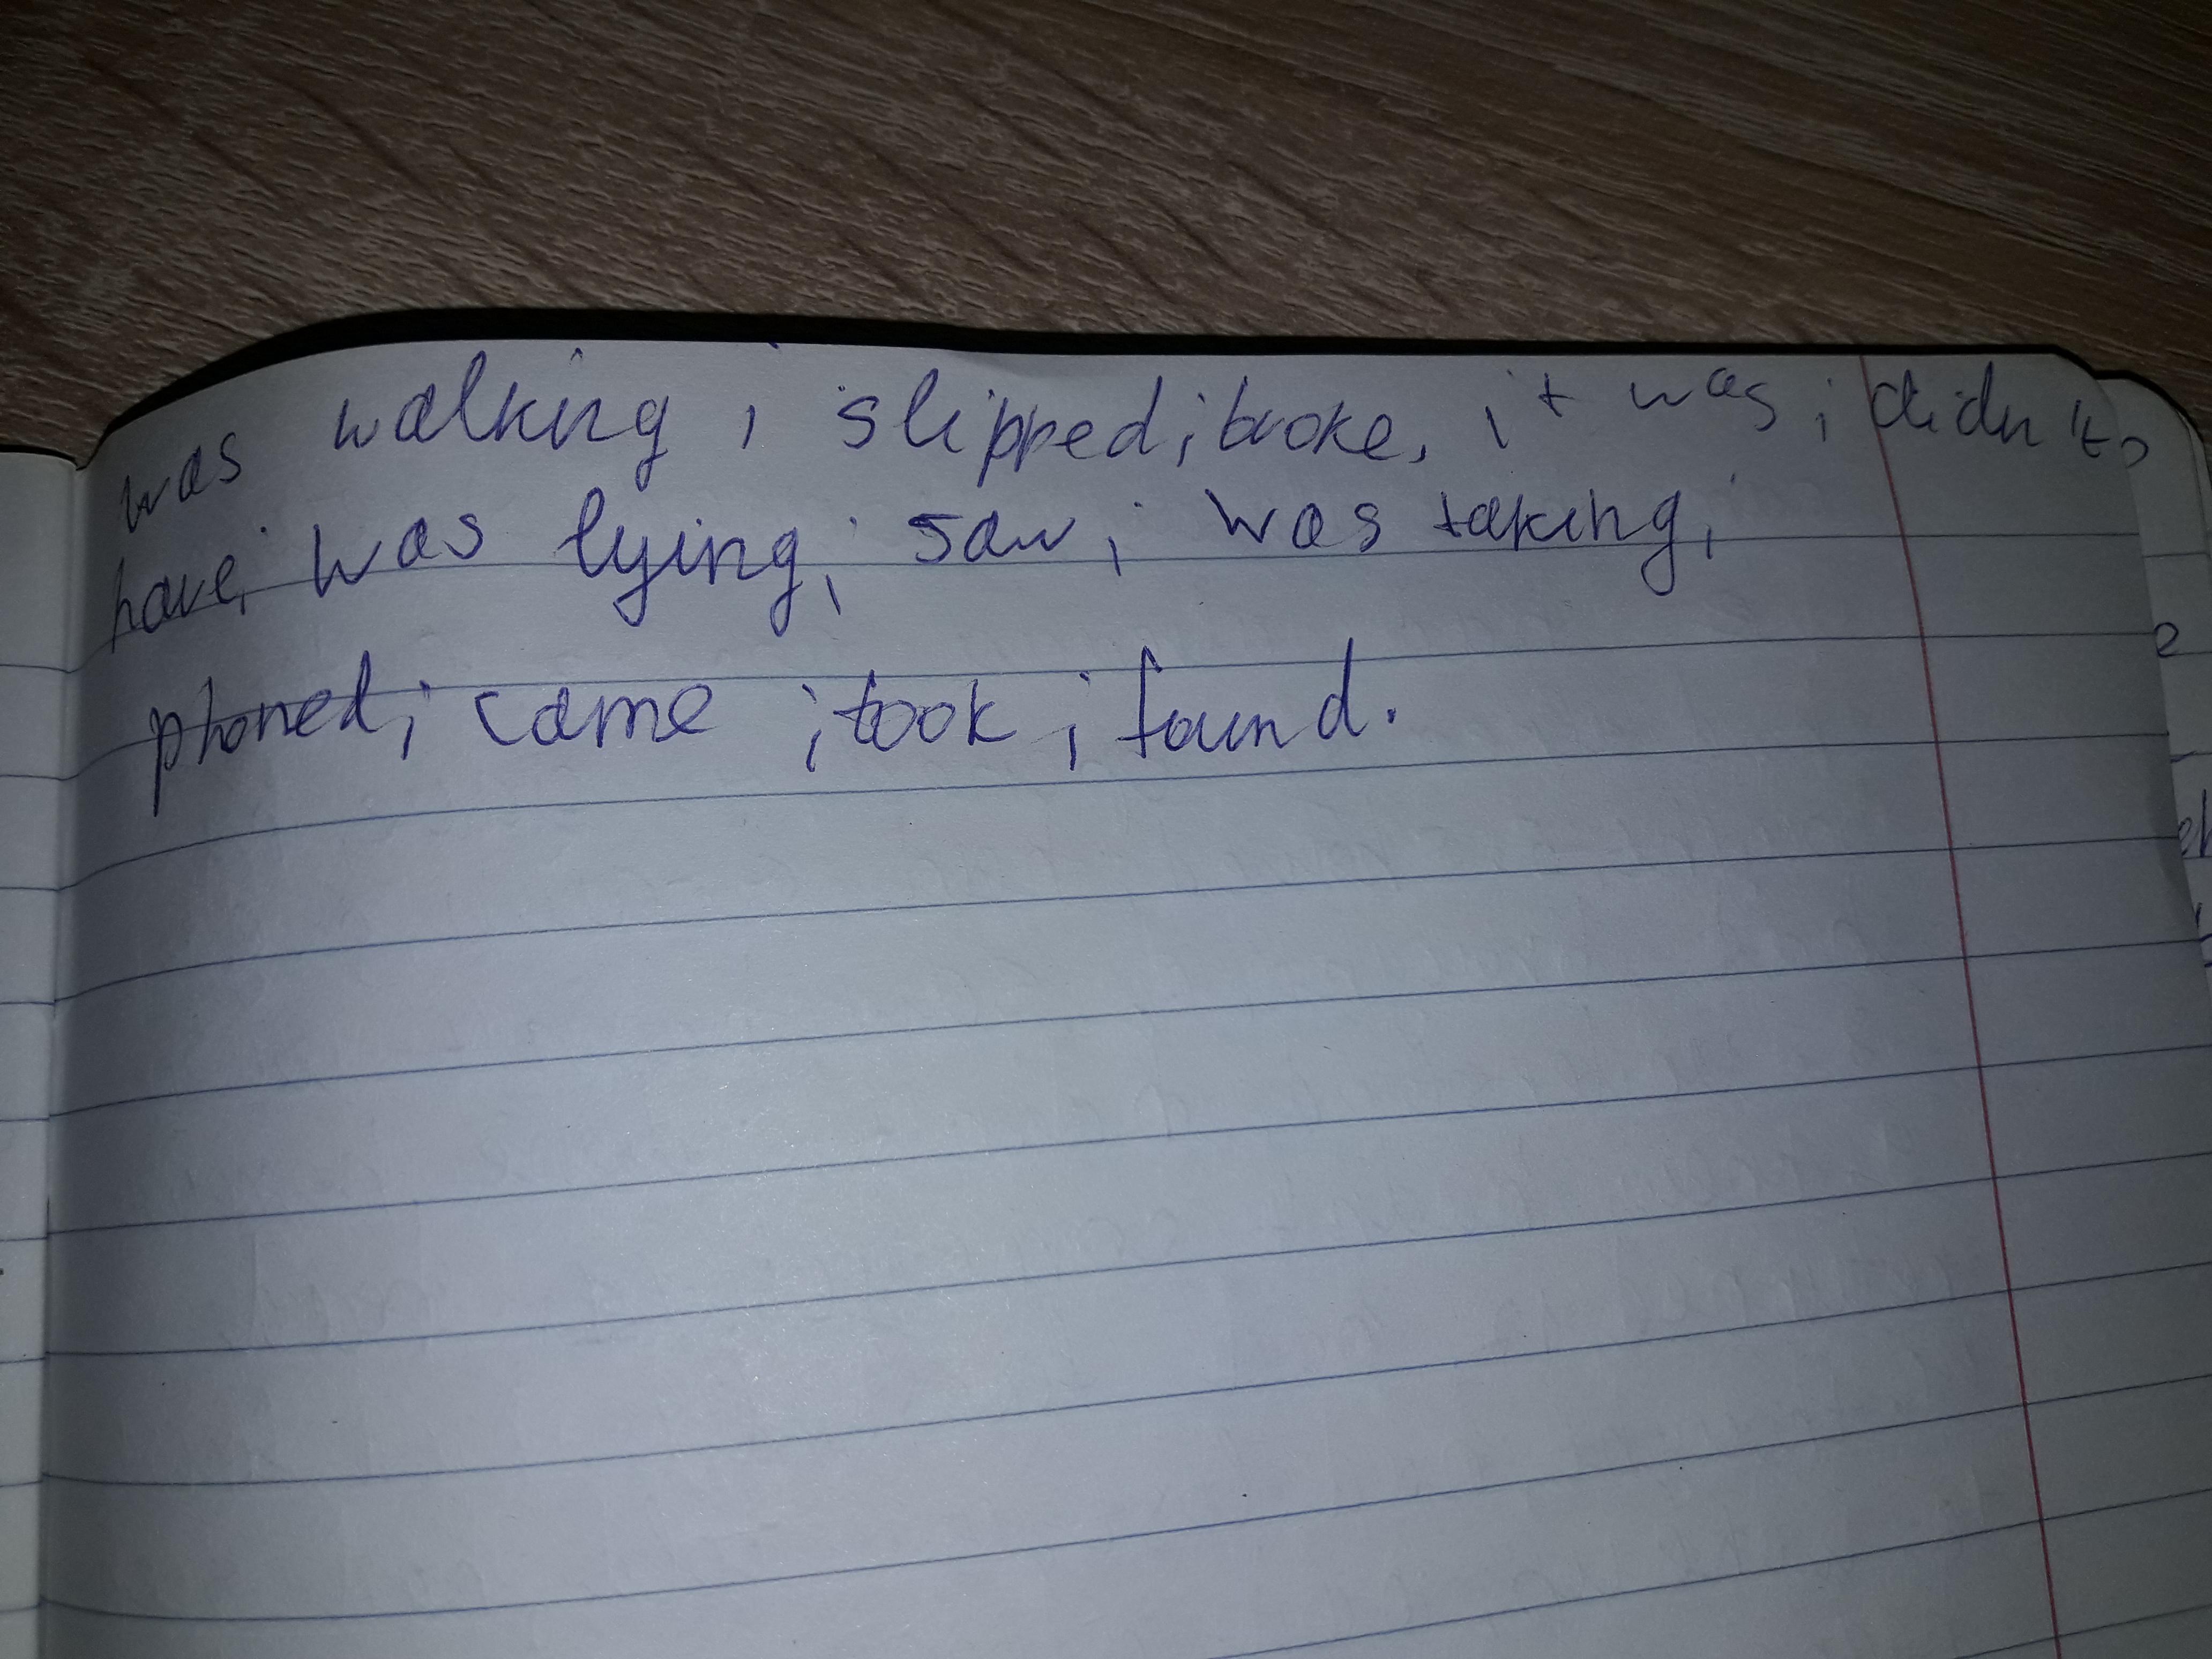 was walking ; slipped ; broke, it was ; didn't
have ; was lying ; saw ; was taking ;
phoned ; came ; took ; found.